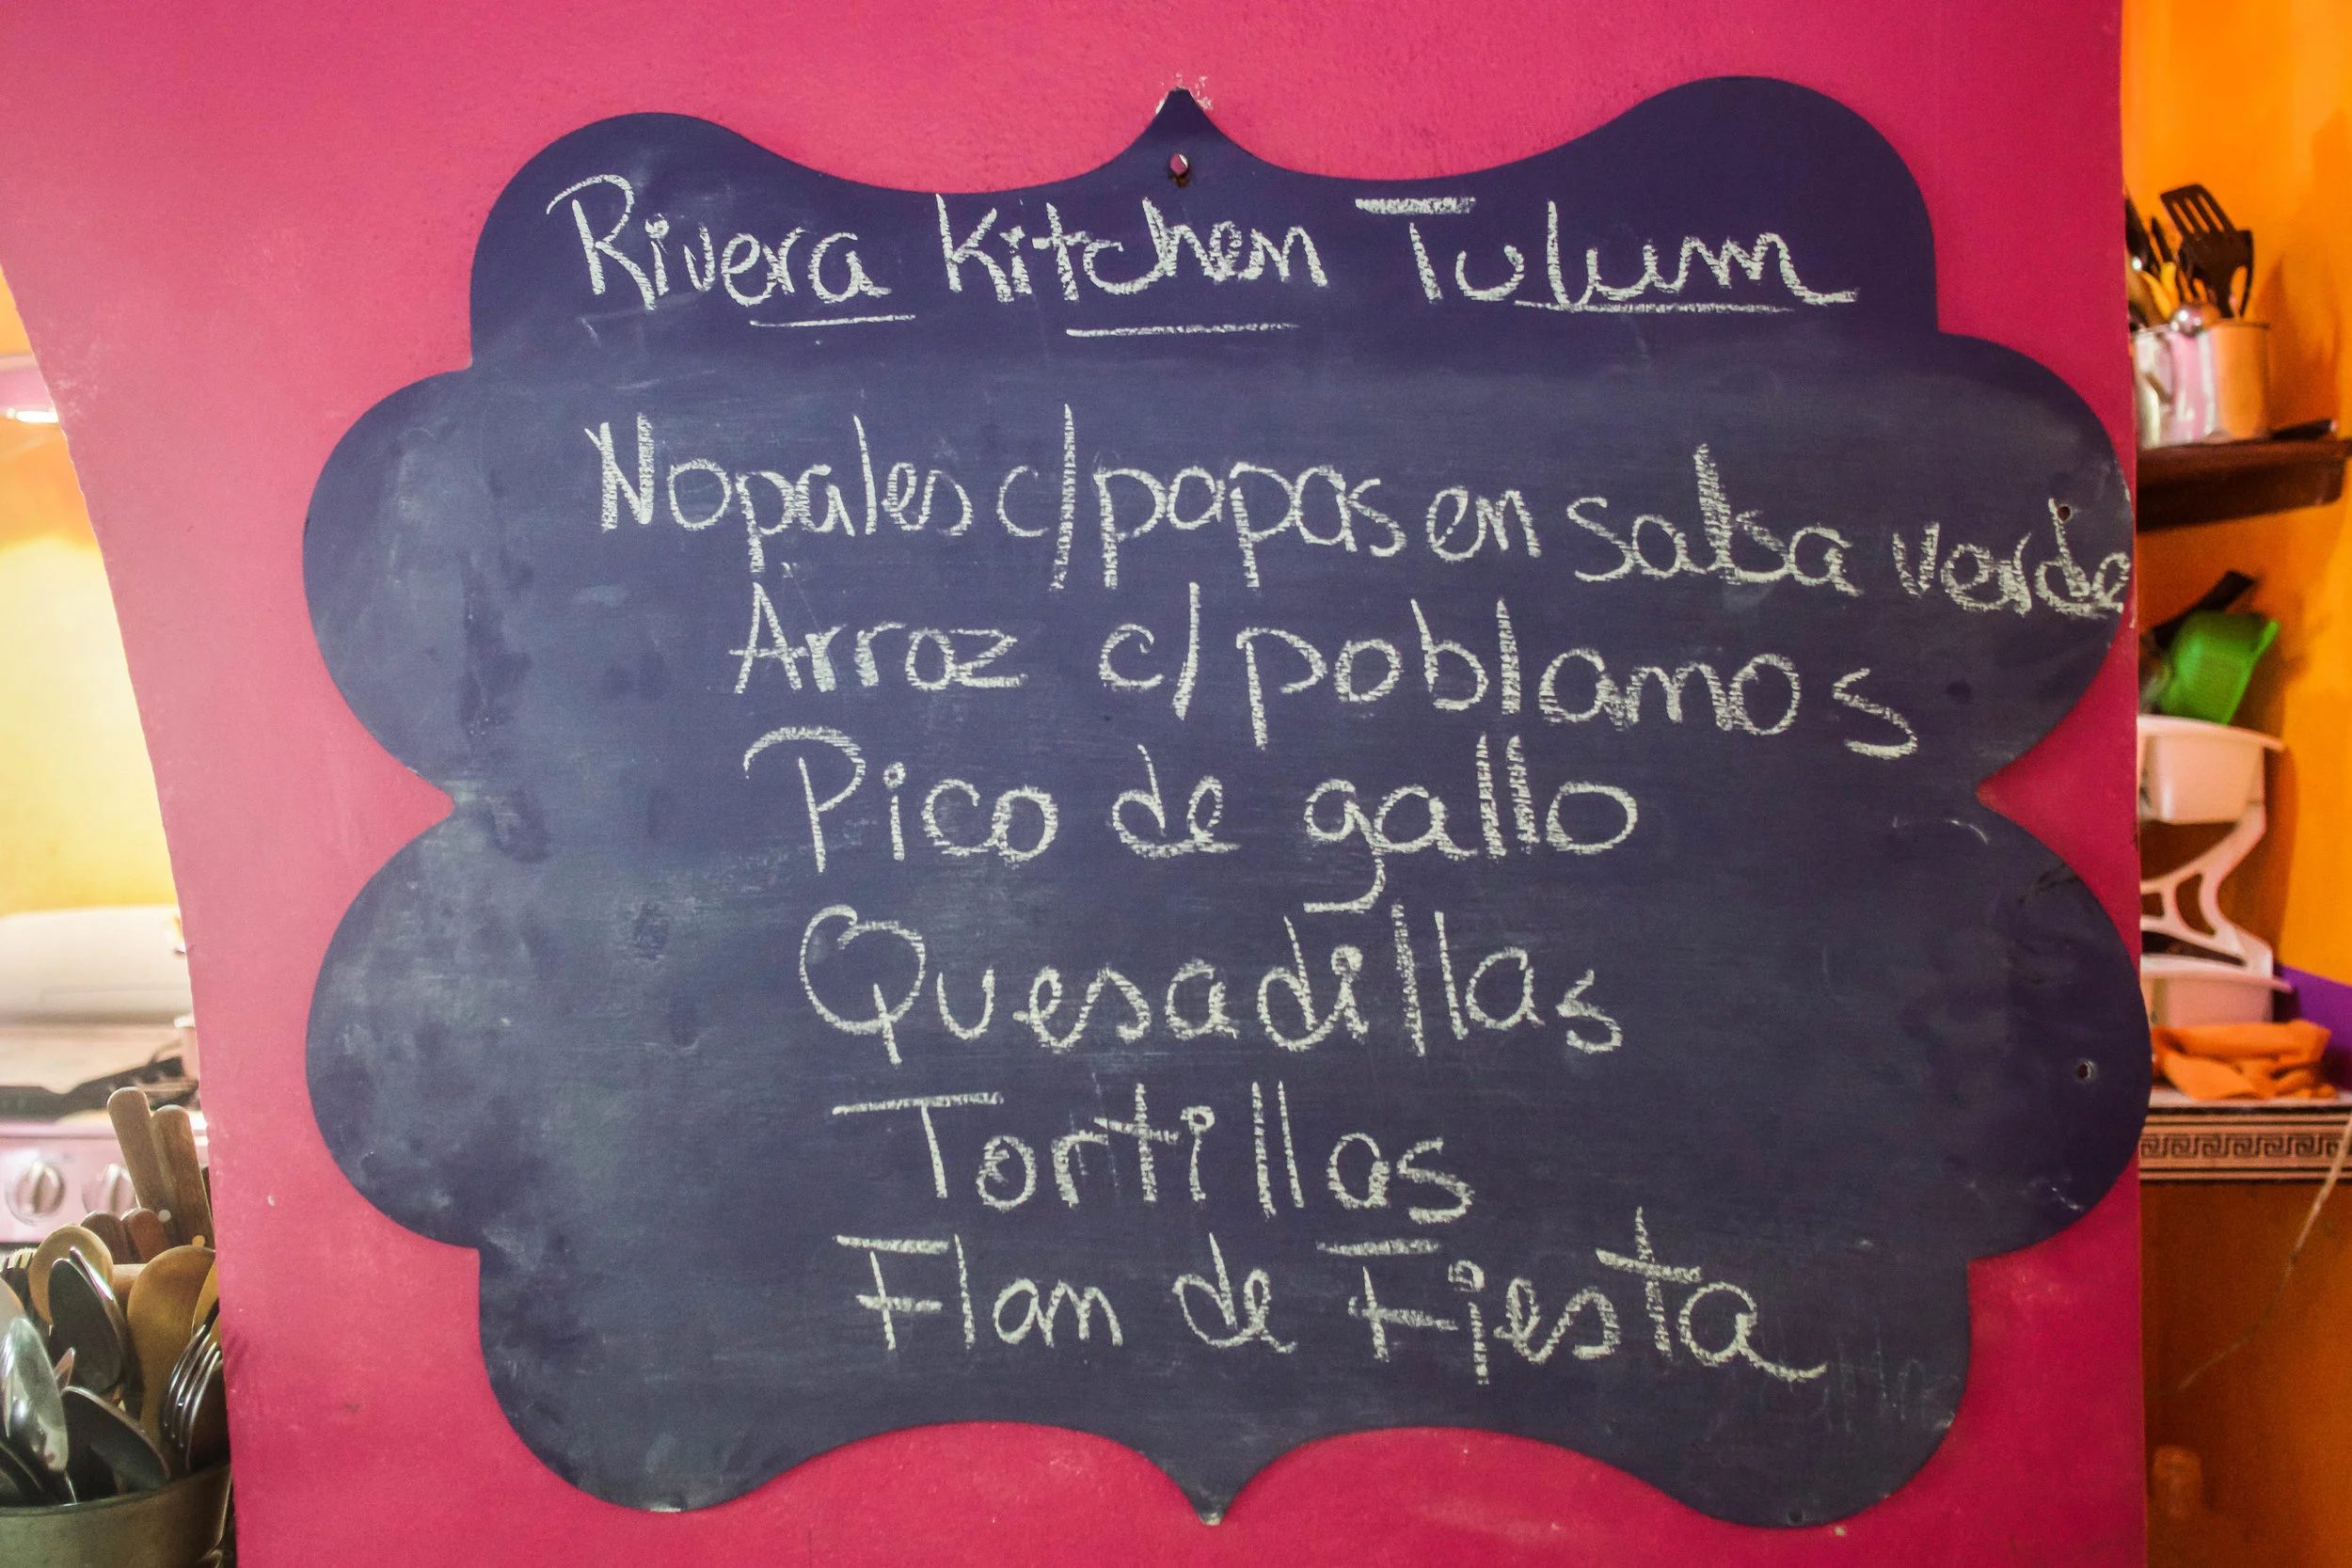 Rivera Kitchen Tulum
Nopales c/papas en salsa verde
Arroz c/poblamos
Pico de gallo
Quesadillas
Tortillas
Flan de Fiesta